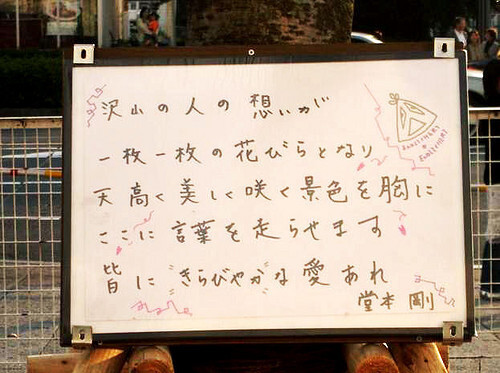 沢山の人の想いが
一枚一枚の花びらとなり
天高く美しく咲く景色を胸に
ここに言葉を走らせます
皆に"きらびやか"な愛あれ
堂本 剛